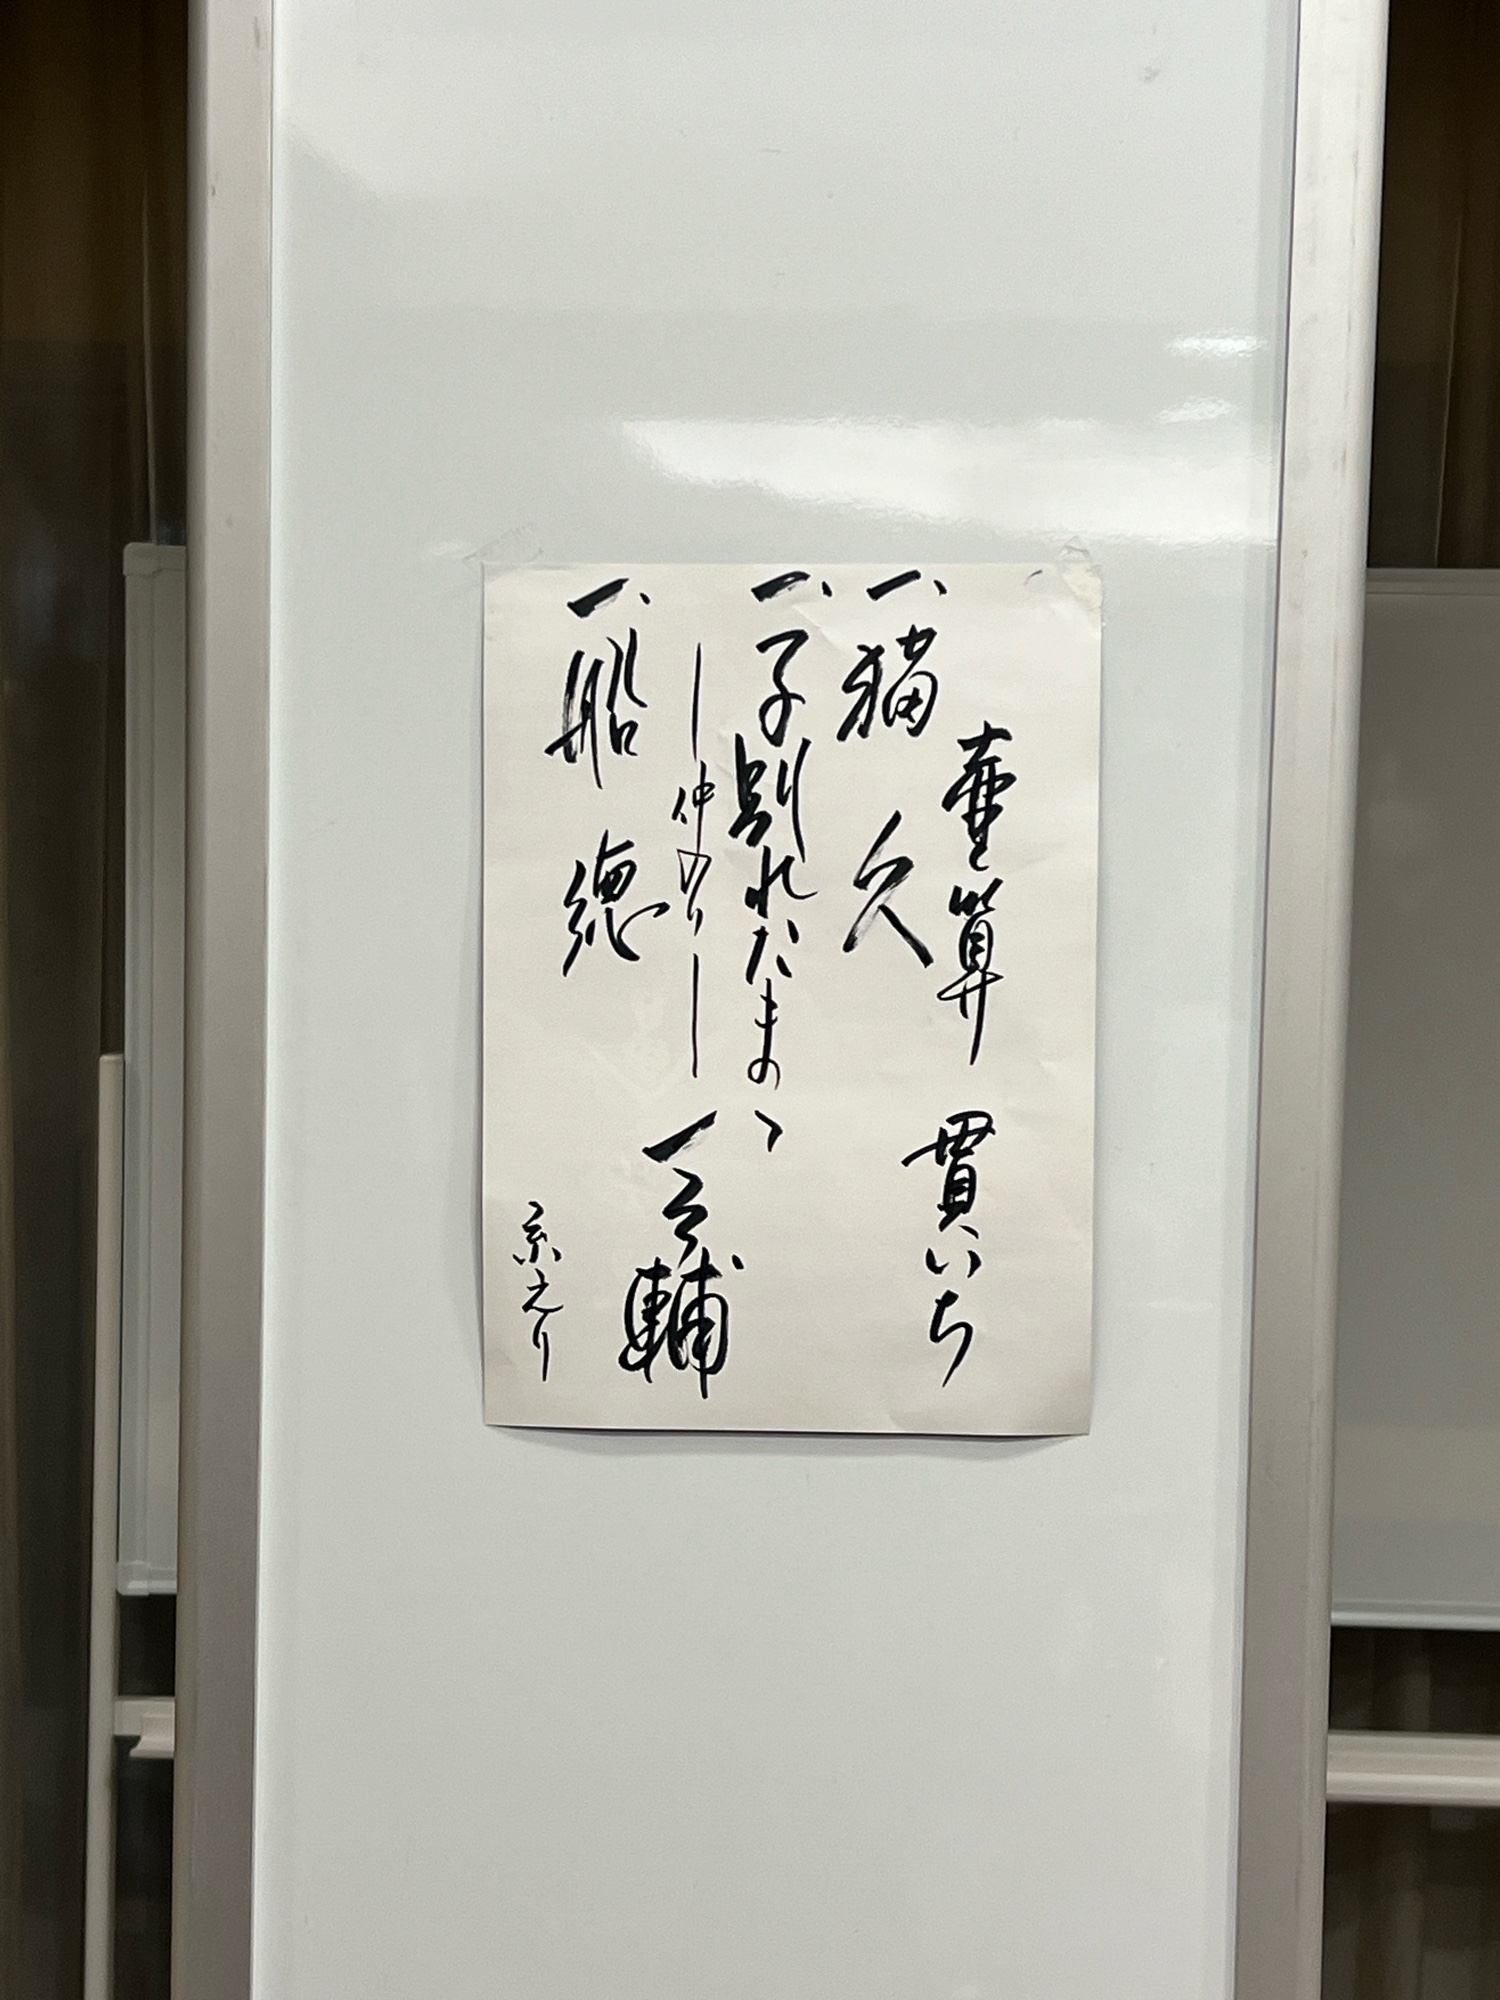 壷算 貫いち
一、猫久
一、子別れ
―仲入り―
一、船徳
一之輔
糸えり